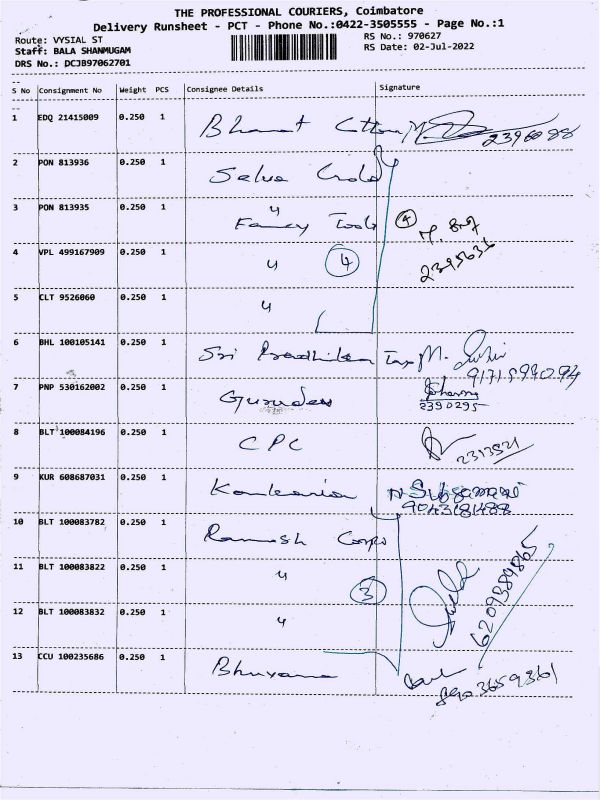 THE PROFESSIONAL COURIERS, Coimbatore
Delivery Runsheet - PCT - Phone No.:0422-3505555 - Page No.:1
Route: VYSIAL ST RS No.: 970627
Staff: BALA SHANMUGAM RS Date: 02-Jul-2022
DRS No.: DCJ897062701
S No Consignment No Weight PCS Consignee Details Signature
1 EDQ 21415009 0.250 1 Bharat Cotton 2396088
2 PON 813936 0.250 1 Selva Gold
3 PON 813935 0.250 1 " Fancy Tools 4
4 VPL 499167909 0.250 1 " 4 2395636
5 CLT 9526060 0.250 1 "
6 BHL 100105141 0.250 1 Sri Tex M.
7 PNP 530162002 0.250 1 Gurudev 2390295
8 BLT 100084196 0.250 1 CPC 2313521
9 KUR 608687031 0.250 1 9043181488
10 BLT 100083782 0.250 1 Ramesh Corps
11 BLT 100083822 0.250 1 " 3 6209384865
12 BLT 100083832 0.250 1 "
13 CCU 100235686 0.250 1 Bhuyana 8903659361